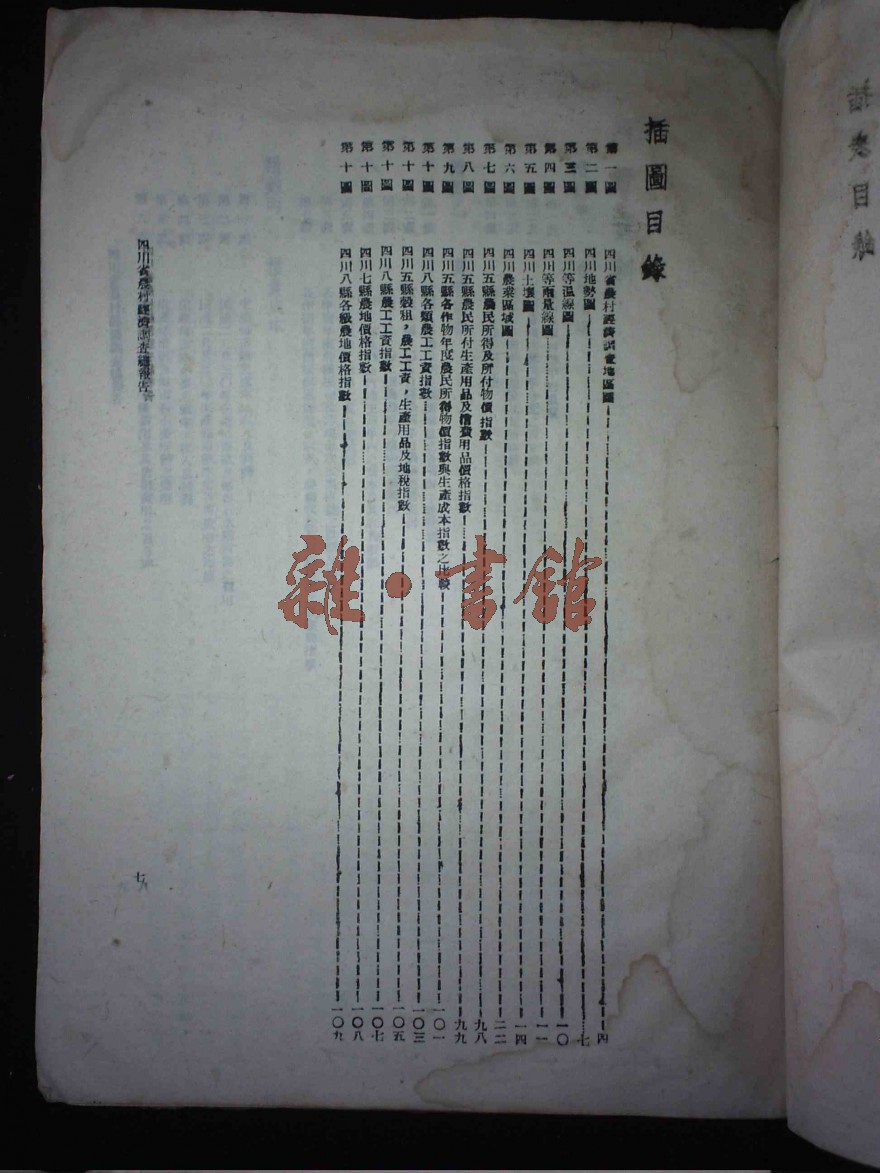 插圖目錄
第一圖 四川省農村經濟調查地區圖 四
第二圖 四川地勢圖 七
第三圖 四川等溫線圖 一〇
第四圖 四川等雨量線圖 一一
第五圖 四川土壤圖 一四
第六圖 四川農業區域圖 二二
第七圖 四川五縣農民所得及所付物價指數 九八
第八圖 四川五縣農民所付生產用品及消費用品價格指數 九九
第九圖 四川五縣各作物年度農民所得物價指數與生產成本指數之比較 一〇一
第十圖 四川八縣各類農工工資指數 一〇三
第十圖 四川五縣穀租，農工工資，生產用品及地稅指數 一〇五
第十圖 四川八縣農工工資指數 一〇七
第十圖 四川七縣農地價格指數 一〇八
第十圖 四川八縣各級農地價格指數 一〇九
四川省農村經濟調查總報告
七
插表目錄
雜·書館